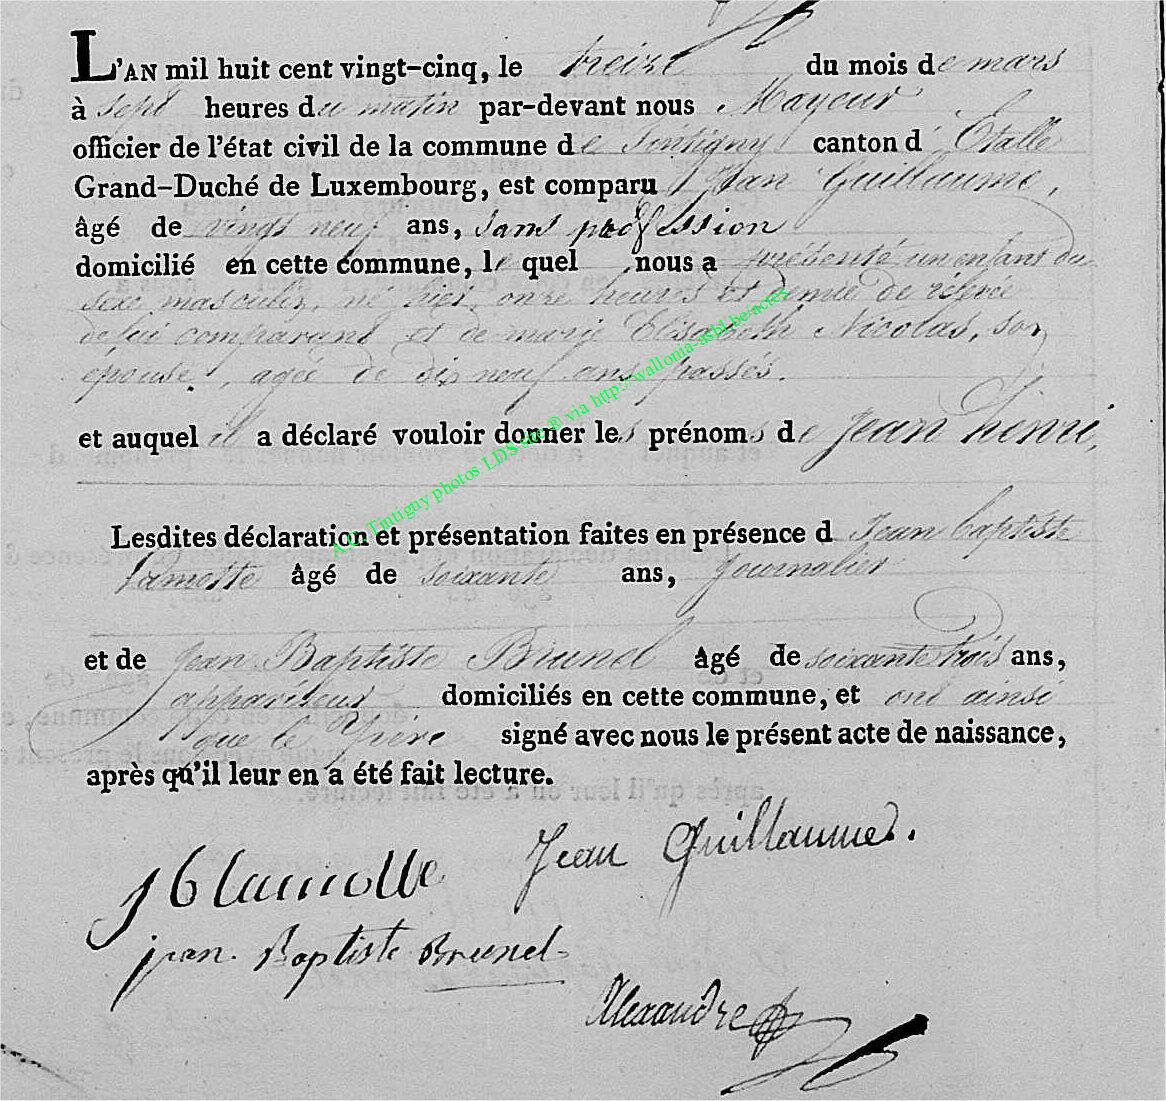 L'AN mil huit cent vingt-cinq, le treize du mois de mars
à sept heures du matin par-devant nous Mayeur
officier de l'état civil de la commune de Tintigny canton d'Etalle
Grand-Duché de Luxembourg, est comparu Jean Guillaume,
âgé de vingt neuf ans, sans profession
domicilié en cette commune, le quel nous a présenté un enfant du
sexe masculin, né hier, onze heures et demie de relevée
de lui comparant et de marie Elisabeth Nicolas, son
épouse, agée de dix neuf ans passés.
et auquel il a déclaré vouloir donner les prénoms de Jean henri,
A.C. Tintigny photos LDS site ® via http://wallonia-asbl.be/actes
Lesdites déclaration et présentation faites en présence d Jean baptiste
Lamotte âgé de soixante ans, Journalier
et de Jean Baptiste Brunel âgé de soixante trois ans,
appariteur domiciliés en cette commune, et ont ainsi
que le Père signé avec nous le présent acte de naissance,
après qu'il leur en a été fait lecture.
Jean Guillaume.
J B Lamotte
jean. Baptiste Brunel
Alexandre